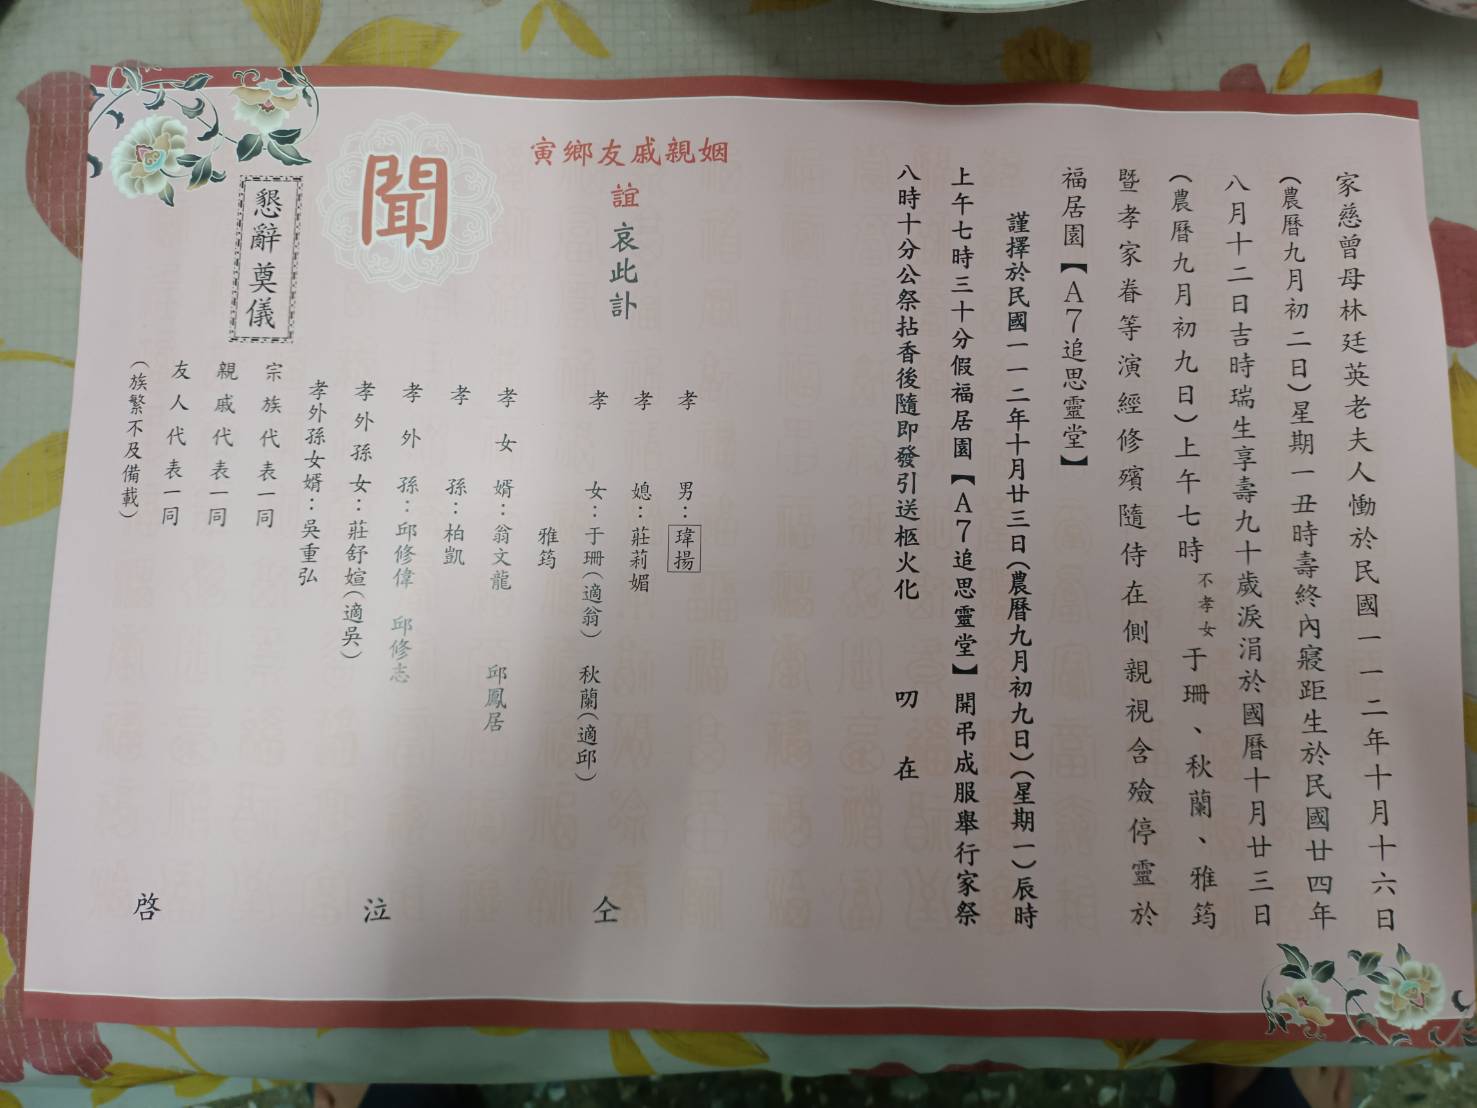 家慈曾母林廷英老夫人慟於民國一一二年十月十六日
(農曆九月初二日)星期一丑時壽終內寢距生於民國廿四年
八月十二日吉時瑞生享壽九十歲淚涓於國曆十月廿三日
(農曆九月初九日)上午七時不孝女于珊、秋蘭、雅筠
暨孝家眷等演經修殯隨侍在側親視含殮停靈於
福居園【A7追思靈堂】
謹擇於民國一一二年十月廿三日(農曆九月初九日)(星期一)辰時
上午七時三十分假福居園【A7追思靈堂】開弔成服舉行家祭
八時十分公祭拈香後隨即發引送柩火化 叨在
姻親戚友鄉寅
誼 哀此訃
聞
孝 男：瑋揚
孝 媳：莊莉媚
孝 女：于珊(適翁) 秋蘭(適邱)
雅筠
孝女婿：翁文龍 邱鳳居
孝 孫：柏凱
孝外 孫：邱修偉 邱修志
孝外孫女：莊舒媗(適吳)
孝外孫女婿：吳重弘
宗族代表一同
親戚代表一同
友人代表一同
(族繁不及備載)
仝
泣
啓
懇辭奠儀